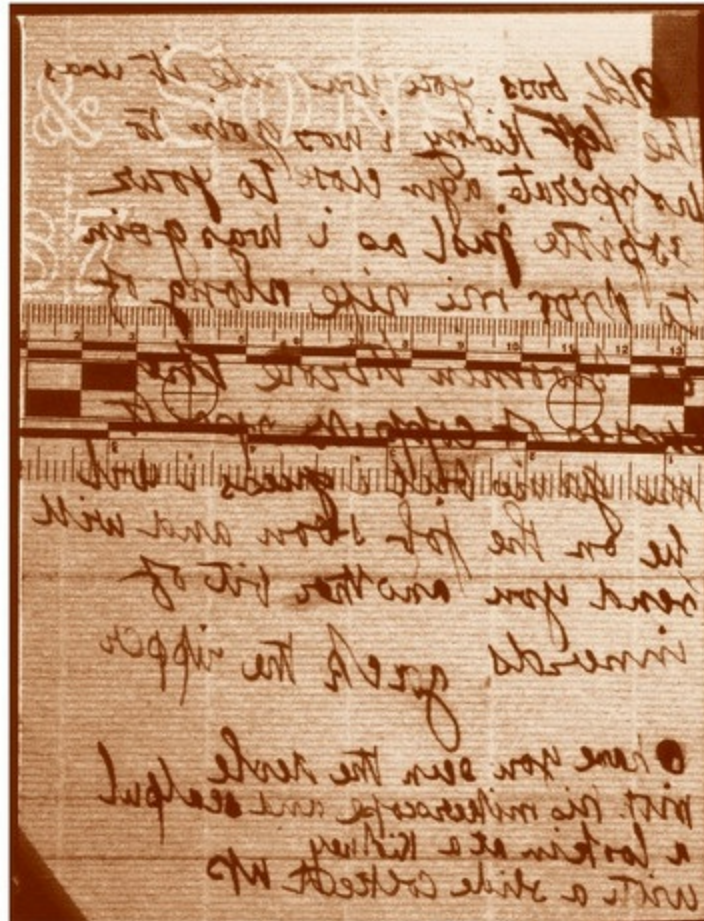 Old boss you was rite it was
the left kidny i was goin to
hoperate agin close to your
ospitle just as i was goin
to dror mi nife along of
2 3 5 6 7 8 9 10 11 12 13
bloomin throte them
cusses of coppers spoilt
the game but i guess i wil
be on the job soon and will
send you another bit of
innerds
Jack the ripper
O have you seen the devle
with his mikerscope and scalpul
a lookin at a Kidney
with a slide cocked up